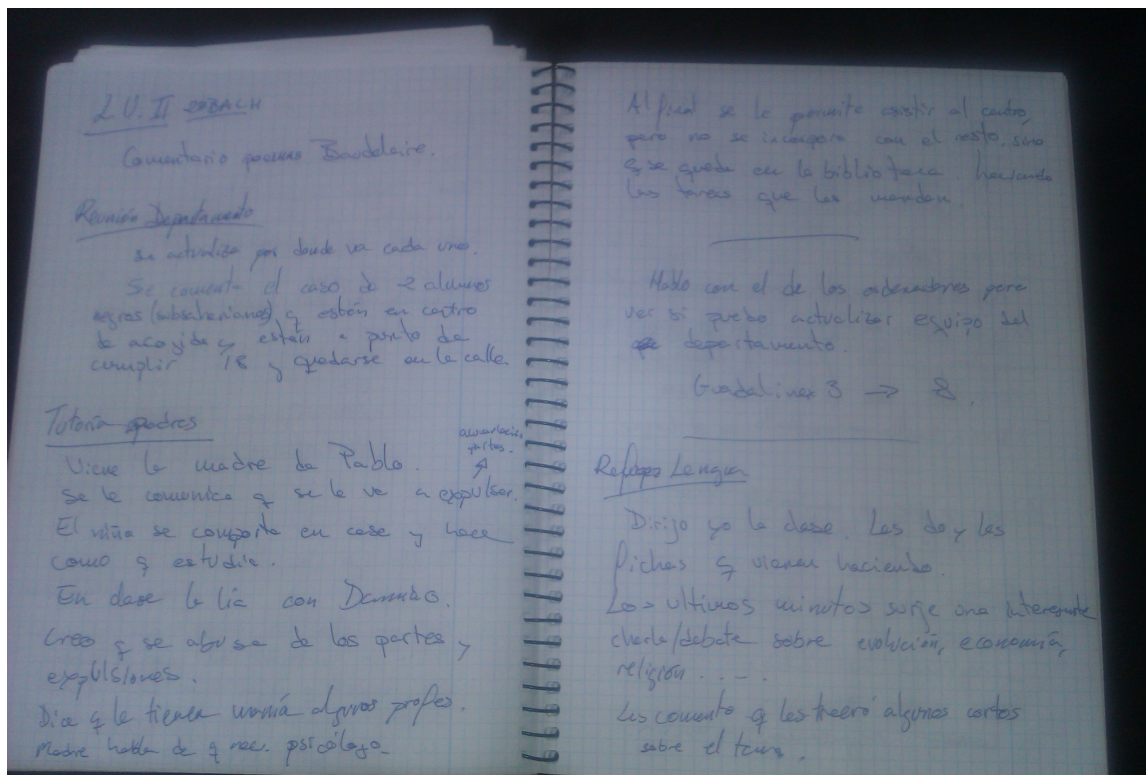 L.U. II 2ºBACH
Comentario poemas Baudelaire.
Reunión Departamento
Se actualiza por donde va cada uno.
Se comenta el caso de 2 alumnos
negros (subsaharianos) q están en centro
de acogida y están a punto de
cumplir 18 y quedarse en la calle.
Tutoría padres
Viene la madre de Pablo.
acumulación
partes.
Se le comunica q se le va a expulsar.
El niño se comporta en casa y hace
como q estudia.
En clase la lía con
Creo q se abusa de los partes y
expulsiones.
Dice q le tienen manía algunos profes.
Madre habla de q nec. psicólogo.
Al final se le permite asistir al centro,
pero no se incorpora con el resto, sino
q se queda en la biblioteca haciendo
las tareas que les mandan.
Hablo con el de los ordenadores para
ver si puedo actualizar equipo del
departamento.
Guadalinex 3 → 8.
Refuerzo Lengua
Dirijo yo la clase. Les doy las
fichas q vienen haciendo.
Los ultimos minutos surge una interesante
charla/debate sobre evolución, economía,
religión . . . .
Les comento q les traeré algunos cortos
sobre el tema.